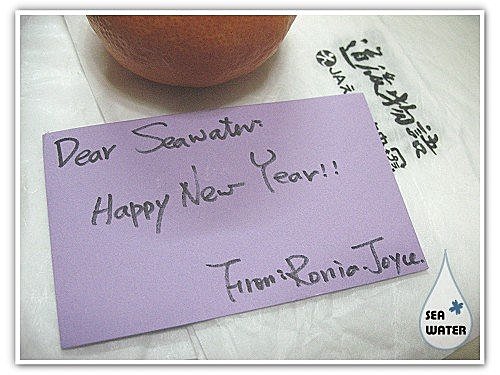 Dear Seawater:
Happy New Year!!
From: Ronia. Joyce.
道後物語
JA
SEA
WATER